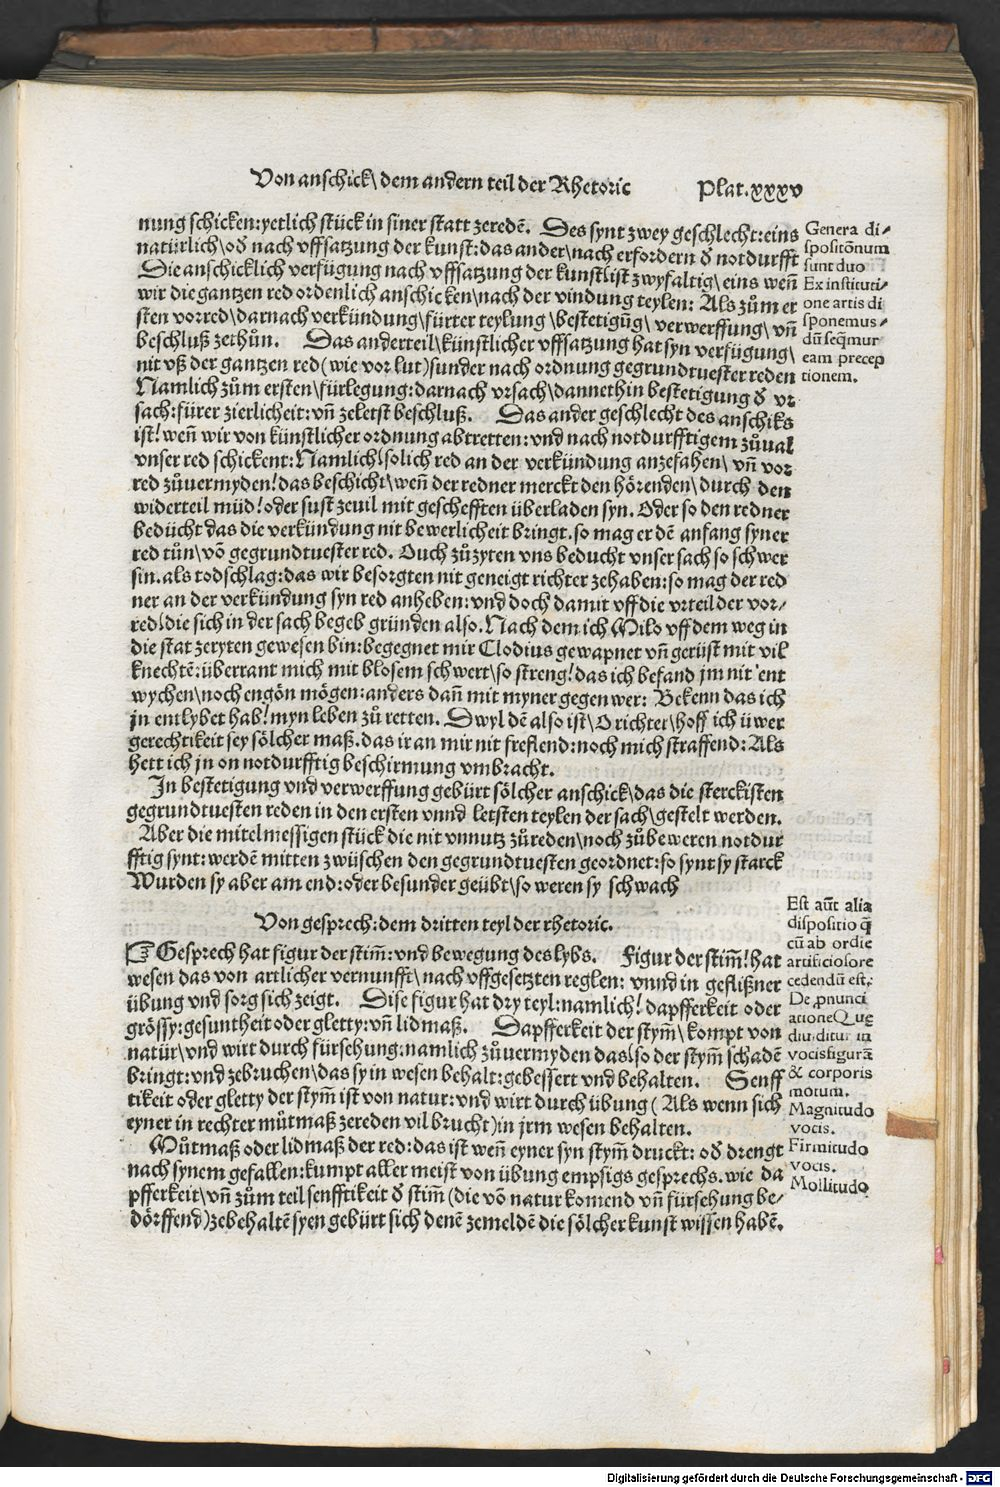 Von anschick\ dem andern teil der Rhetoric Plat.xxxv
nung schicken: yetlich stück in siner statt zeredē. Des synt zwey geschlecht: eins
natürlich\ oď nach vffsatzung der kunst: das ander\ nach erfordern ď notdurfft
Die anschicklich verfügung nach vffsatzung der kunst\ ist zwyfaltig\ eins weñ
wir die gantzen red ordenlich anschicken\ nach der vindung teylen: Als zům er
sten vorred\ darnach verkündung\ fürter teylung\ bestetigūg\ verwerffung\ vñ
beschluß zethůn. Das ander teil\ künstlicher vffsatzung hat syn verfügung\
nit vß der gantzen red (wie vor lut) sunder nach ordnung gegrundtuester reden
Namlich zům ersten\ fürlegung: darnach vrsach\ dannethin bestetigung ď vr
sach: fürer zierlicheit: vñ zeletst beschluß. Das ander geschlecht des anschiks
ist! weñ wir von künstlicher ordnung abtretten: vnd nach notdurfftigem zůual
vnser red schickent: Namlich\ solich red an der verkündung anzefahen\ vñ vor
red zůuermyden! das beschicht\ weñ der redner merckt den hörenden\ durch den
widerteil müd! oder sust zeuil mit geschefften überladen syn. Oder so den redner
bedücht das die verkündung nit bewerlicheit bringt. so mag er dē anfang syner
red tůn\ vō gegrundtuester red. Ouch zůzyten vns beducht vnser sach so schwer
sin. als todschlag: das wir besorgten nit geneigt richter zehaben: so mag der red
ner an der verkündung syn red anheben: vnd doch damit vff die vrteil der vor⸗
red\ die sich in der sach begeb gründen also. Nach dem ich Milo vff dem weg in
die stat zeryten gewesen bin: begegnet mir Clodius gewapnet vñ gerüst mit vil
knechtē: überrant mich mit blosem schwert\ so streng! das ich befand jm nit ent
wychen\ noch engōn mögen: anders dañ mit myner gegenwer: Bekenn das ich
jn entlybet hab! myn leben zů retten. Dwyl dē also ist\ O richter\ hoff ich üwer
gerechtikeit sey sölcher maß. das ir an mir nit freflend: noch mich straffend: Als
hett ich jn on notdurfftig beschirmung vmbracht.
In bestetigung vnd verwerffung gebürt sölcher anschick\ das die sterckisten
gegrundtuesten reden in den ersten vnnd letsten teylen der sach\ gestelt werden.
Aber die mitelmessigen stück die nit vnnutz zůreden\ noch zůbeweren notdur
fftig synt: werdē mitten zwüschen den gegrundtuesten geordnet: so synt sy starck
Wurden sy aber am end: oder besunder geübt\ so weren sy schwach
Von gesprech: dem dritten teyl der rhetoric.
☞ Gesprech hat figur der stim̄: vnd bewegung des lybs. Figur der stim̄! hat
wesen das von artlicher vernunfft\ nach vffgesetzten reglen: vnnd in geflißner
übung vnd sorg sich zeigt. Dise figur hat dry teyl: namlich! dapfferkeit oder
grössy: gesuntheit oder gletty: vñ lidmaß. Dapfferkeit der stym̄\ kompt von
natür\ vnd wirt durch fürsehung: namlich zůuermyden das\ so der stym̄ schadē
bringt: vnd zebruchen\ das sy in wesen behalt: gebessert vnd behalten. Senff
tikeit oder gletty der stym̄ ist von natur: vnd wirt durch übung (Als wenn sich
eyner in rechter můtmaß zereden vil brucht) in jrm wesen behalten.
Můtmaß oder lidmaß der red: das ist weñ eyner syn stym̄ druckt: oď drengt
nach synem gefallen: kumpt aller meist von übung empsigs gesprechs. wie da
pfferkeit\ vñ zům teil senfftikeit ď stim̄ (die vō natur komend vñ fürsehung be⸗
dörffend) zebehaltē syen gebürt sich denē zemeldē die sölcher kunst wissen habē.
Genera di⸗
spositōnum
sunt duo
Ex instituti⸗
one artis di
sponemus⸗
dū seq̄mur
eam precep
tionem.
Est aūt alia
dispositio q̄
cū ab ordīe
artificiosore
cedendū est,
De ꝓnunci
atione Que
diuiditur in
vocis figurā
& corporis
motum.
Magnitudo
vocis.
Firmitudo
vocis.
Mollitudo
Digitalisierung gefördert durch die Deutsche Forschungsgemeinschaft - DFG